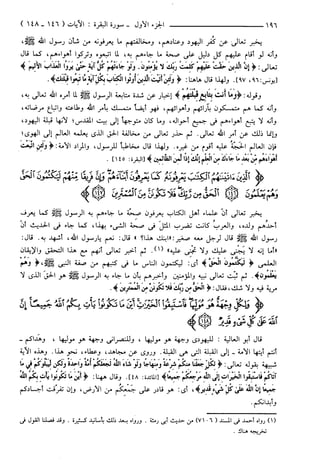 ١٩٦ الجزء الأول ـ سورة البقرة : الآيات (١٤٦ ـ ١٤٨)
يخبر تعالى عن كُفر اليهود وعنادهم، ومخالفتهم ما يعرفونه من شأن رسول الله ﷺ،
وأنه لو أقام عليهم كل دليل على صحة ما جاءهم به، لما اتبعوه وتركوا أهواءهم، كما قال
تعالى: ﴿إن الذين حقت عليهم كلمت ربك لا يؤمنون. ولو جاءتهم كل آية حتى يروا العذاب الأليم﴾
[يونس: ٩٦، ٩٧]. ولهذا قال هاهنا: ﴿ولئن أتيت الذين أوتوا الكتاب بكل آية ما تبعوا قبلتك﴾.
وقوله: ﴿وما أنت بتابع قبلتهم﴾ إخبار عن شدة متابعة الرسول ﷺ لما أمره الله تعالى به،
وأنه كما هم مستمسكون بآرائهم وأهوائهم، فهو أيضاً متمسك بأمر الله وطاعته واتباع مرضاته،
وأنه لا يتبع أهواءهم في جميع أحواله، وما كان متوجهاً إلى بيت المقدس؛ لأنها قبلة اليهود،
وإنما ذلك عن أمر الله تعالى. ثم حذر تعالى عن مخالفة الحق الذي يعلمه العالم إلى الهوى؛
فإن العالم الحجة عليه أقوم من غيره. ولهذا قال مخاطباً للرسول، والمراد الأمة: ﴿ولئن اتبعت
أهواءهم من بعد ما جاءك من العلم إنك إذاً لمن الظالمين﴾ [البقرة: ١٤٥].
الذين آتيناهم الكتاب يعرفونه كما يعرفون أبناءهم وإن فريقاً منهم ليكتمون الحق
وهم يعلمون (١٤٦) الحق من ربك فلا تكونن من الممترين (١٤٧)
يخبر تعالى أن علماء أهل الكتاب يعرفون صحة ما جاءهم به الرسول ﷺ كما يعرف
أحدهم ولده، والعرب كانت تضرب المثل في صحة الشيء بهذا، كما جاء في الحديث أن
رسول الله ﷺ قال لرجل معه صغير: «ابنك هذا؟» قال: نعم يا رسول الله، أشهد به. قال:
«أما إنه لا يجني عليك ولا تجني عليه»(١). ثم أخبر تعالى أنهم مع هذا التحقق والإيقان
العلمي ﴿ليكتمون الحق﴾ أي: ليكتمون الناس ما في كتبهم من صفة النبي ﷺ، ﴿وهم
يعلمون﴾. ثم ثبّت تعالى نبيه والمؤمنين وأخبرهم بأن ما جاء به الرسول ﷺ هو الحق الذي لا
مرية فيه ولا شك، فقال: ﴿الحق من ربك فلا تكونن من الممترين﴾.
ولكل وجهة هو موليها فاستبقوا الخيرات أين ما تكونوا يأت بكم الله جميعاً إن
الله على كل شيء قدير (١٤٨)
قال أبو العالية: لليهودي وجهة هو موليها، وللنصراني وجهة هو موليها، وهداكم ـ
أنتم أيتها الأمة ـ إلى القبلة التي هي القبلة. وروي عن مجاهد، وعطاء، نحو هذا. وهذه الآية
شبيهة بقوله تعالى: ﴿لكل جعلنا منكم شرعة ومنهاجاً ولو شاء الله لجعلكم أمة واحدة ولكن ليبلوكم في ما
آتاكم فاستبقوا الخيرات إلى الله مرجعكم جميعاً﴾ [المائدة: ٤٨]. وقال هاهنا: ﴿أين ما تكونوا يأت بكم الله
جميعاً إن الله على كل شيء قدير﴾، أي: هو قادر على جمعكم من الأرض، وإن تفرقت أجسادكم
وأبدانكم.
(١) رواه أحمد في المسند (٧١٠٦) من حديث أبي رمثة. ورواه بعد ذلك بأسانيد كثيرة. وقد فصلنا القول في
تخريجه هناك.